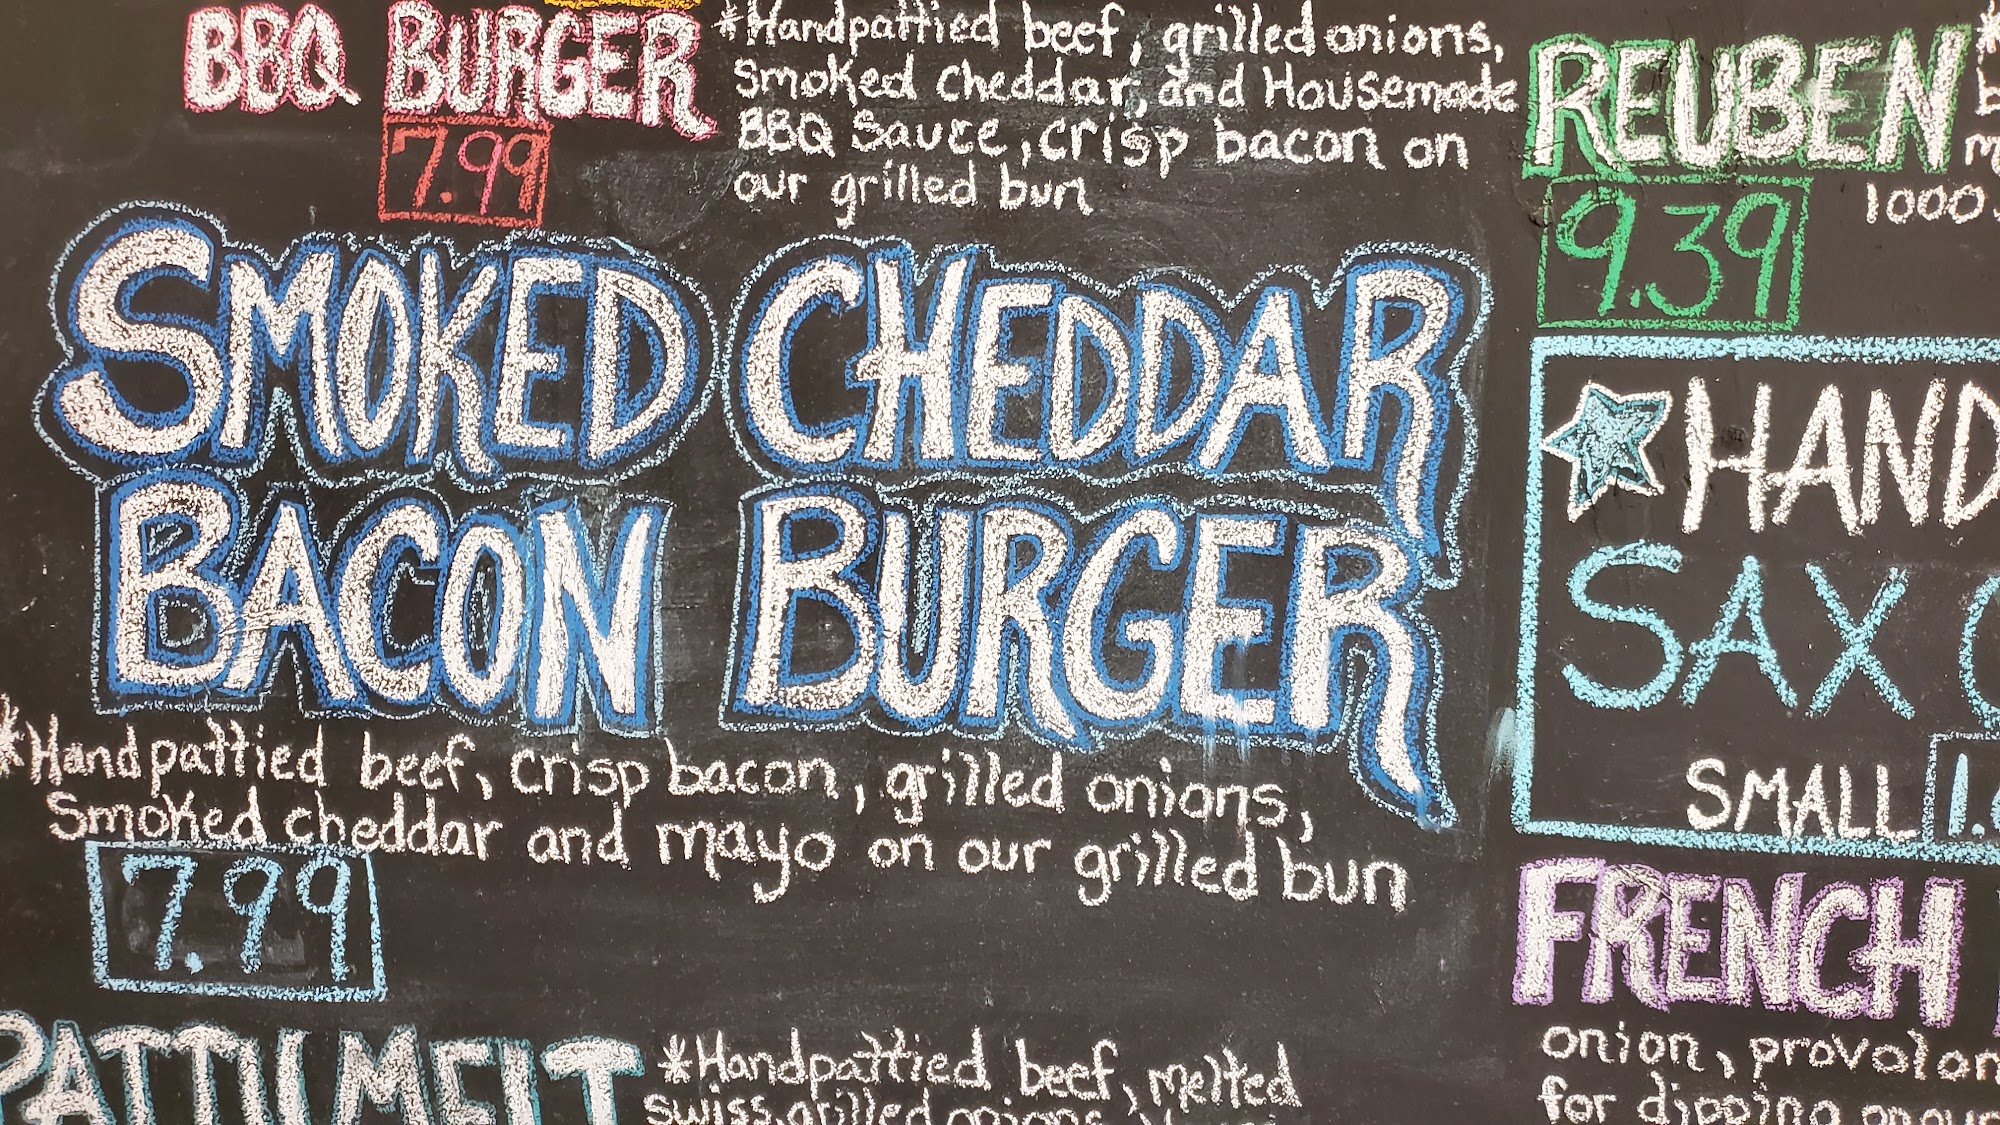 BBQ BURGER
7.99
*Handpattied beef, grilled onions,
smoked cheddar, and Housemade
BBQ Sauce, crisp bacon on
our grilled bun
REUBEN
9.39
1000
SMOKED CHEDDAR
BACON BURGER
*Handpattied beef, crisp bacon, grilled onions,
Smoked cheddar and mayo on our grilled bun
7.99
HAND
SAX
SMALL 1.
FRENCH
onion, provolon
for dipping
PATTY MELT
*Handpattied beef, melted
swiss, grilled onions,